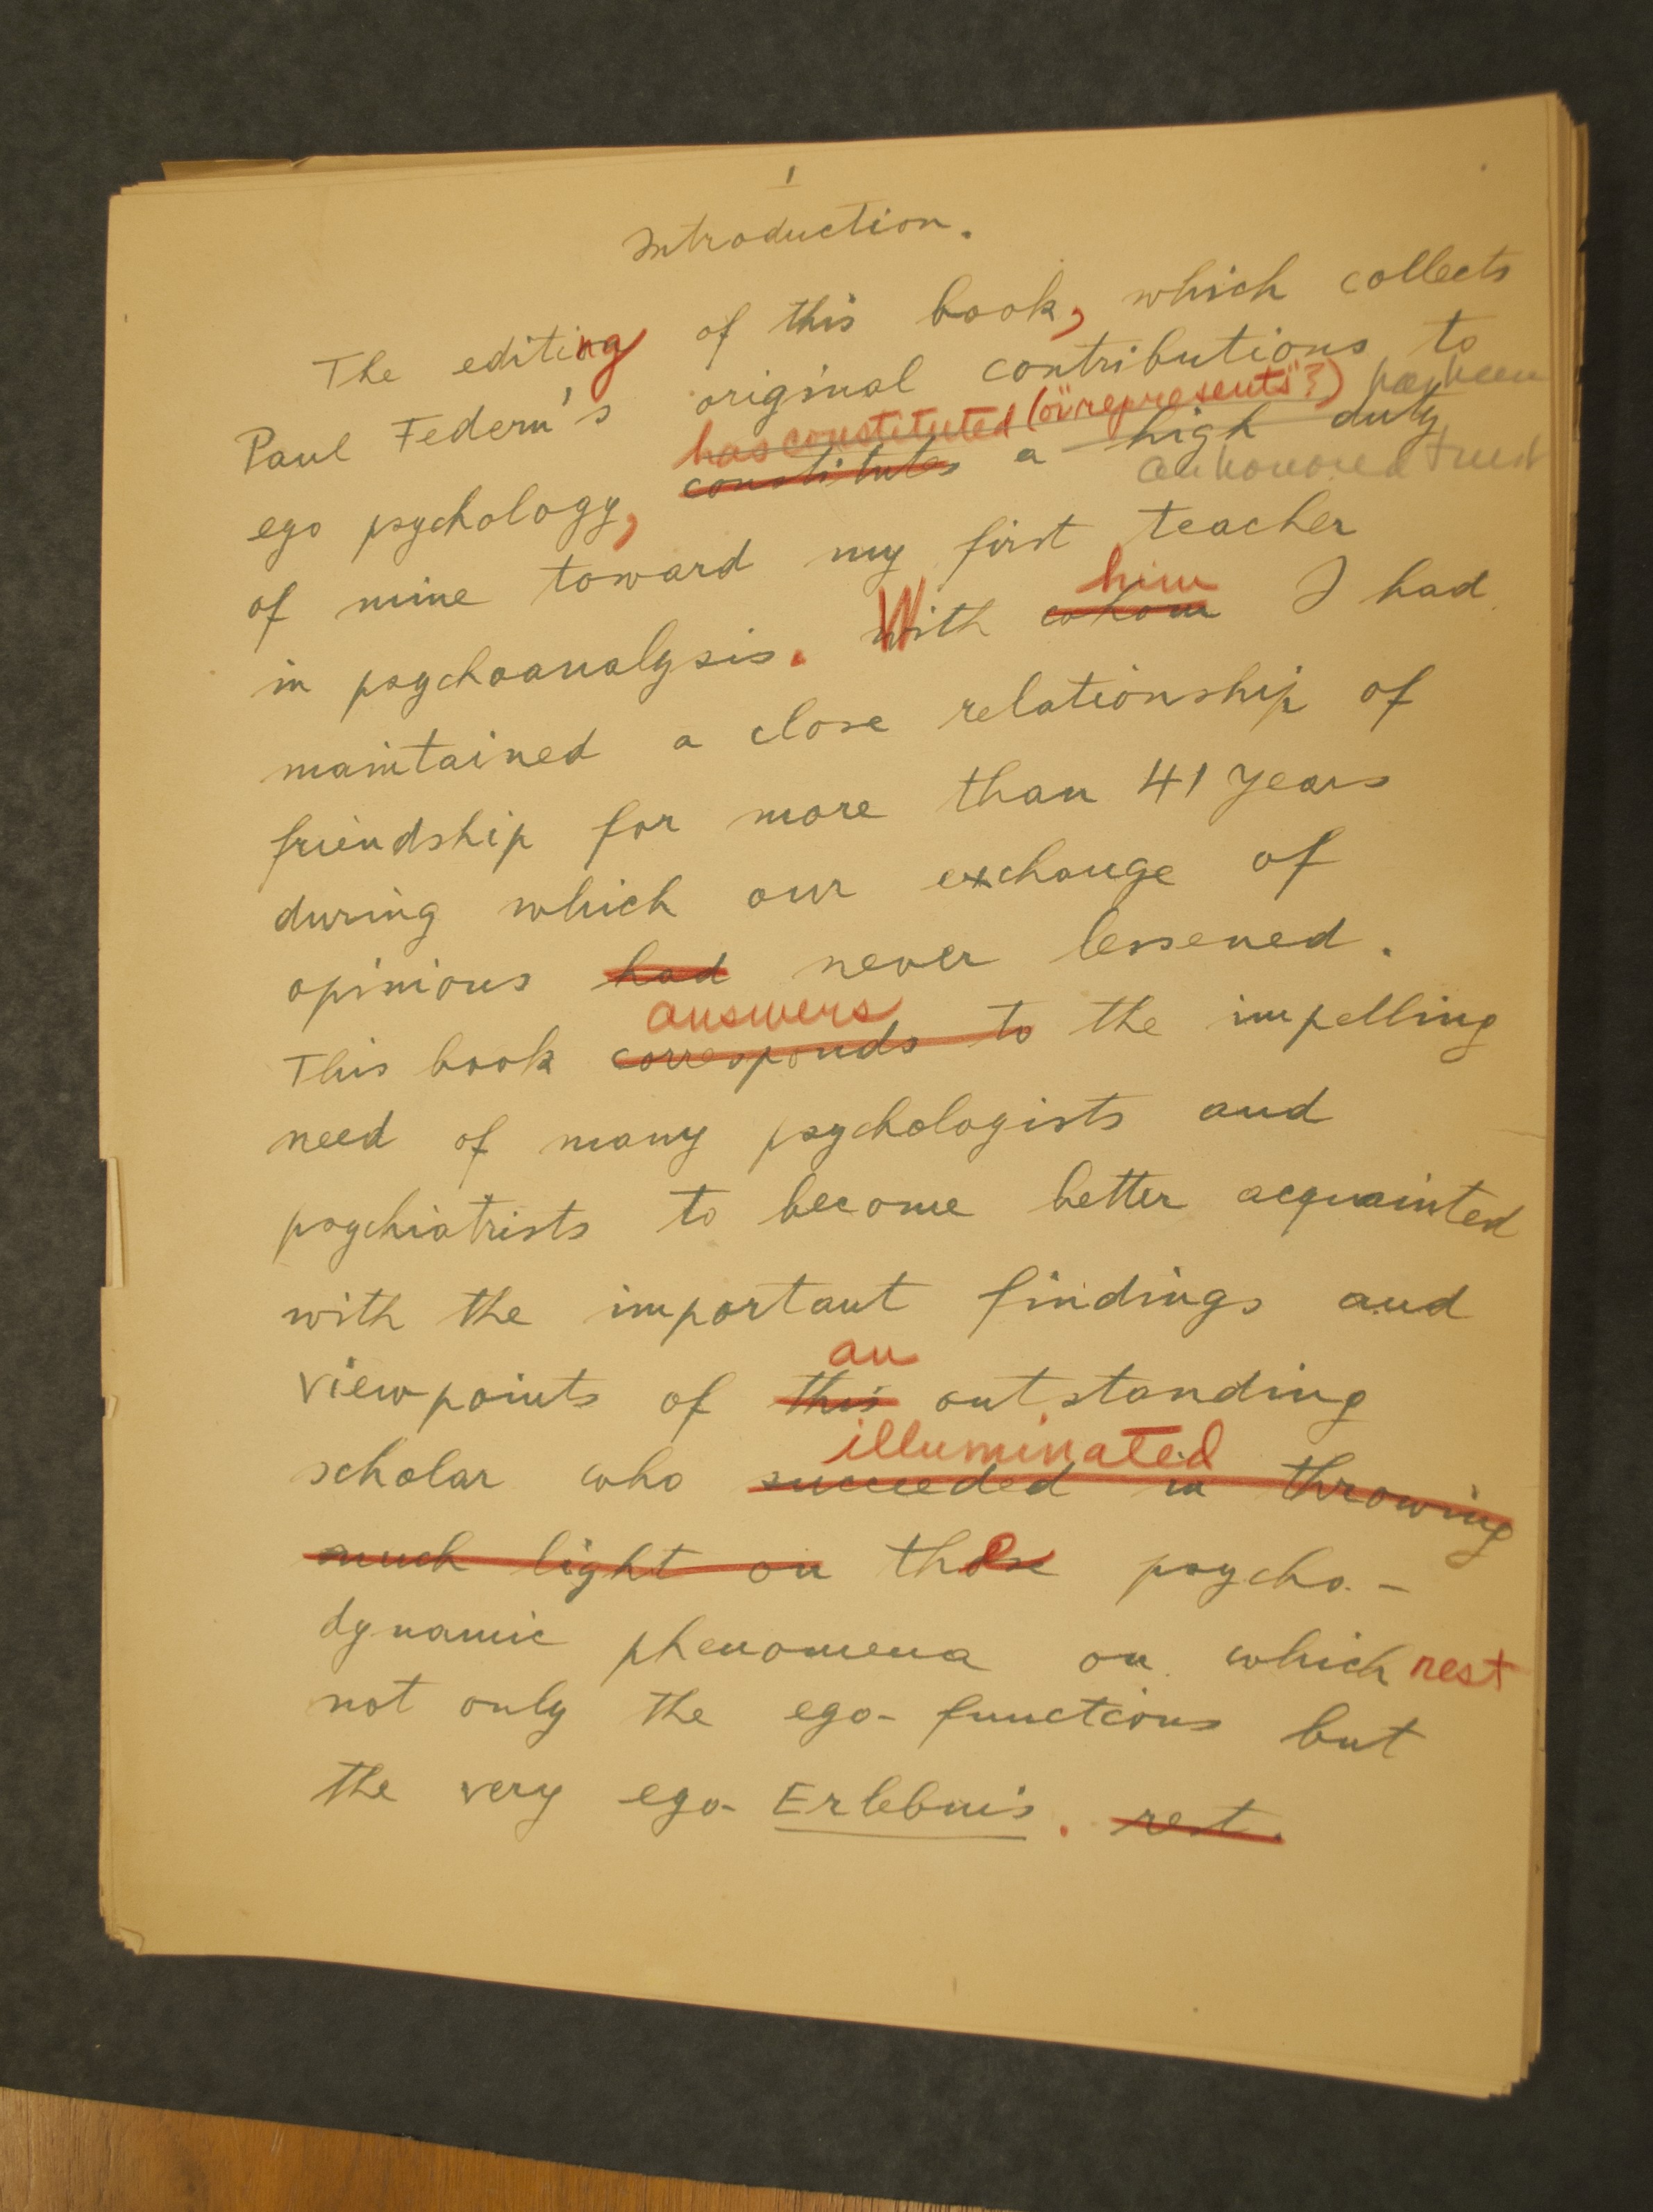 1
Introduction.
The editing of this book, which collects
Paul Federn's original contributions to
has constituted (or "represents"?) has been
ego psychology, constitutes a high duty
an honored trust
of mine toward my first teacher
him
in psychoanalysis. With whom I had
maintained a close relationship of
friendship for more than 41 years
during which our exchange of
opinions had never lessened.
answers
This book corresponds to the impelling
need of many psychologists and
psychiatrists to become better acquainted
with the important findings and
an
viewpoints of this outstanding
illuminated
scholar who succeeded in throwing
much light on those psycho-
dynamic phenomena on which rest
not only the ego-functions but
the very ego-Erlebnis. rest.